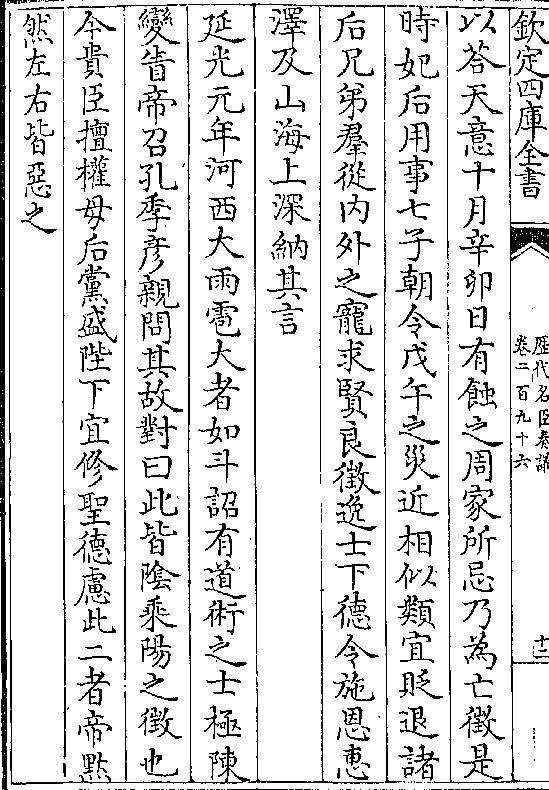 欽定四庫全書
歷代名臣奏議
卷二百九十六
十三
以荅天意十月辛卯日有蝕之周家所忌乃為亡徵是
時妃后用事七子朝令戊午之災近相似類宜貶退諸
后兄弟羣從内外之寵求賢良徵逸士下德令施恩惠
澤及山海上深納其言
延光元年河西大雨雹大者如斗詔有道術之士極陳
變眚帝召孔季彦親問其故對曰此皆陰乘陽之徵也
今貴臣擅權母后黨盛陛下宜修聖德慮此二者帝黙
然左右皆惡之